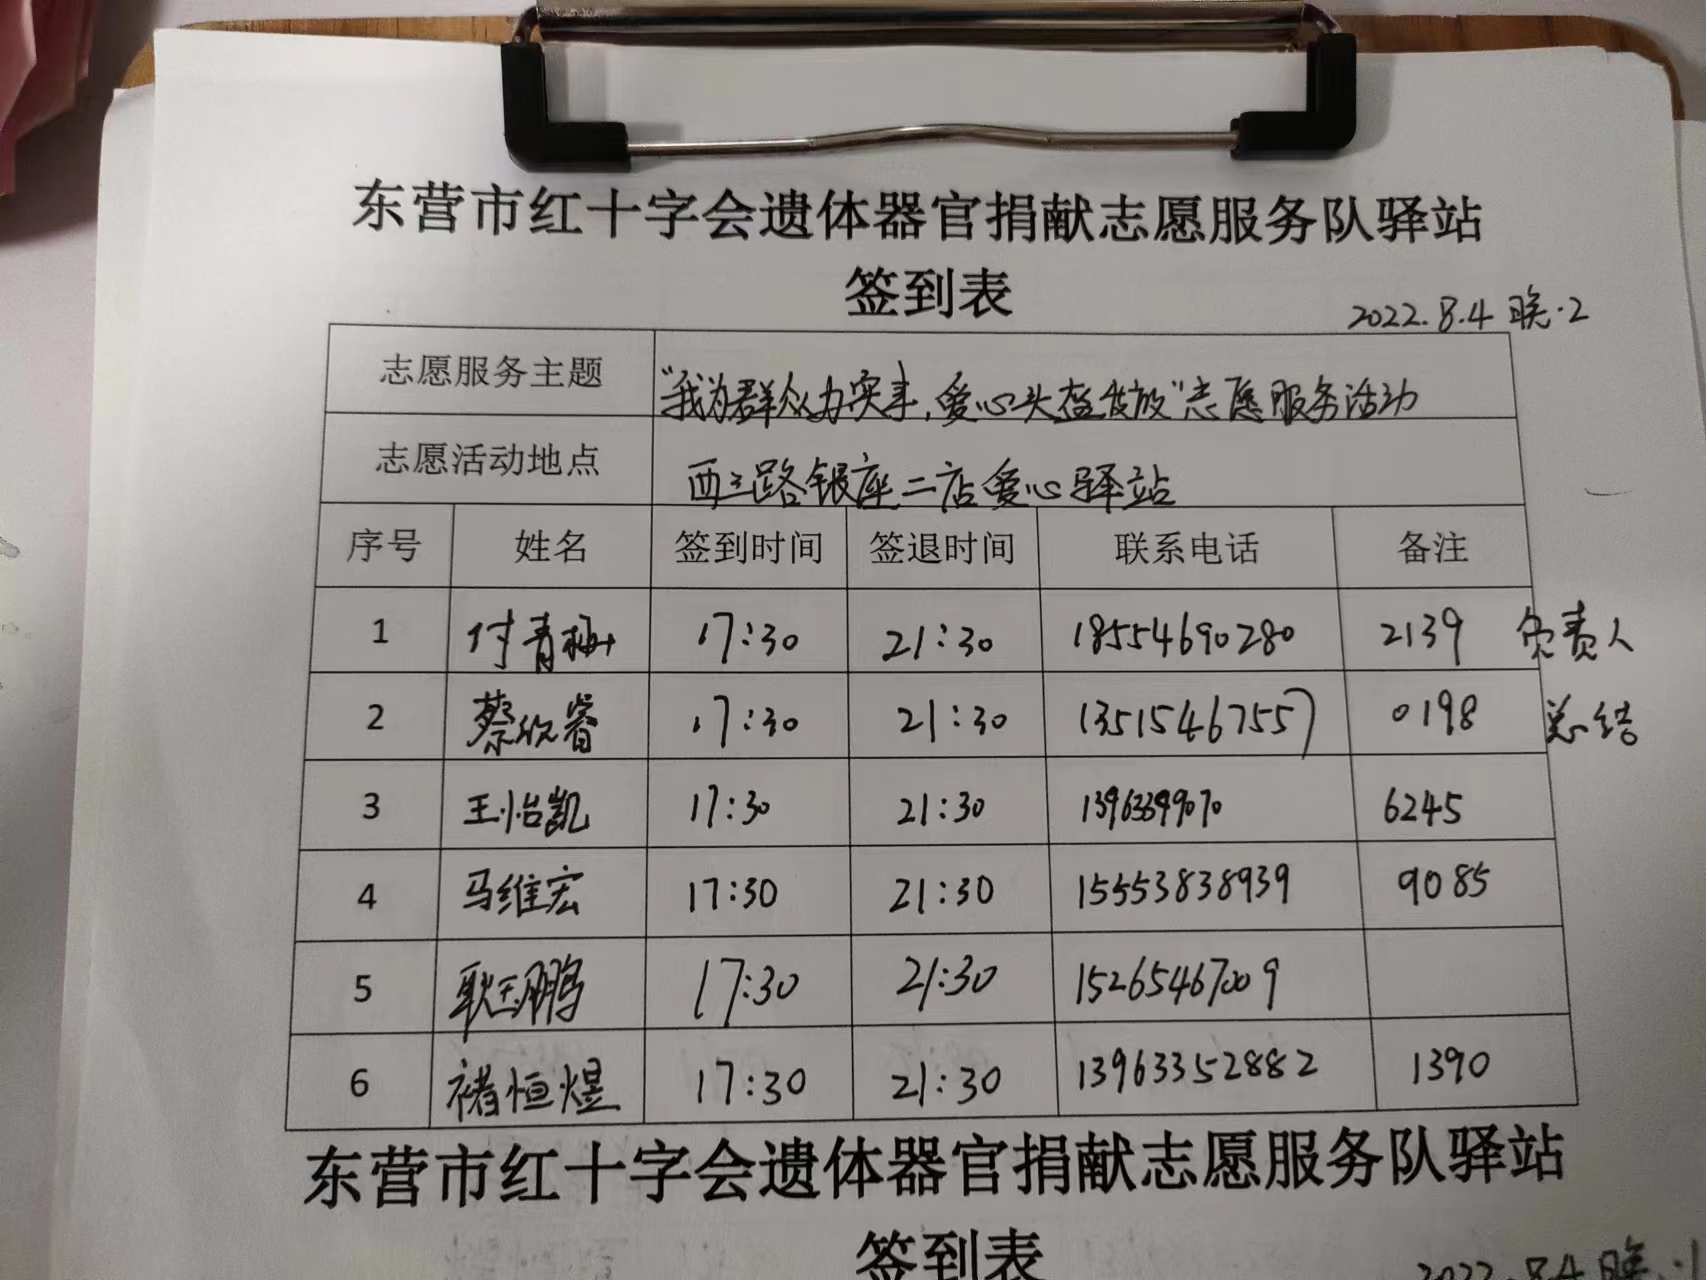 东营市红十字会遗体器官捐献志愿服务队驿站
签到表
2022.8.4 晚·2
志愿服务主题 "我为群众办实事,爱心头盔发放"志愿服务活动
志愿活动地点 西三路银座二店爱心驿站
序号 姓名 签到时间 签退时间 联系电话 备注
1 付青梅 17:30 21:30 18554690280 2139 负责人
2 蔡欣睿 17:30 21:30 13515467557 0198 总结
3 王怡凯 17:30 21:30 13963399070 6245
4 马维宏 17:30 21:30 15553838939 9085
5 耿玉鹏 17:30 21:30 15265467009
6 褚恒煜 17:30 21:30 13963352882 1390
东营市红十字会遗体器官捐献志愿服务队驿站
签到表
2022.8.4 晚·1